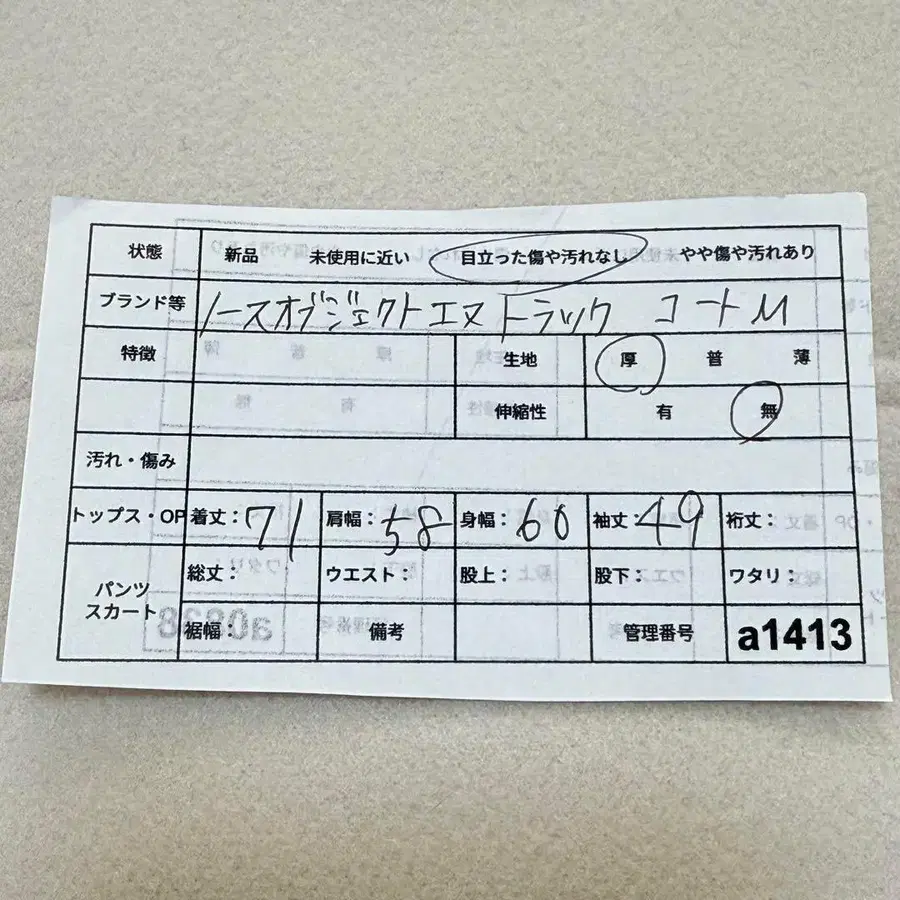 状態 新品 未使用に近い 目立った傷や汚れなし やや傷や汚れあり
ブランド等 ノースオブジェクトエヌ トラック コートM
特徴 生地 厚 普 薄
伸縮性 有 無
汚れ・傷み
トップス・OP 着丈:71 肩幅:58 身幅:60 袖丈:49 裄丈:
パンツ スカート 総丈: ウエスト: 股上: 股下: ワタリ:
裾幅: 備考 管理番号 a1413